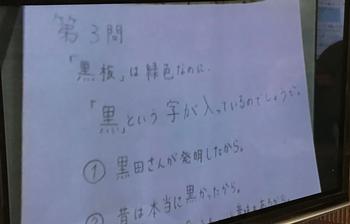 第3問
「黒板」は緑色なのに、
「黒」という字が入っているのでしょうか。
① 黒田さんが発明したから。
② 昔は本当に黒かったから。